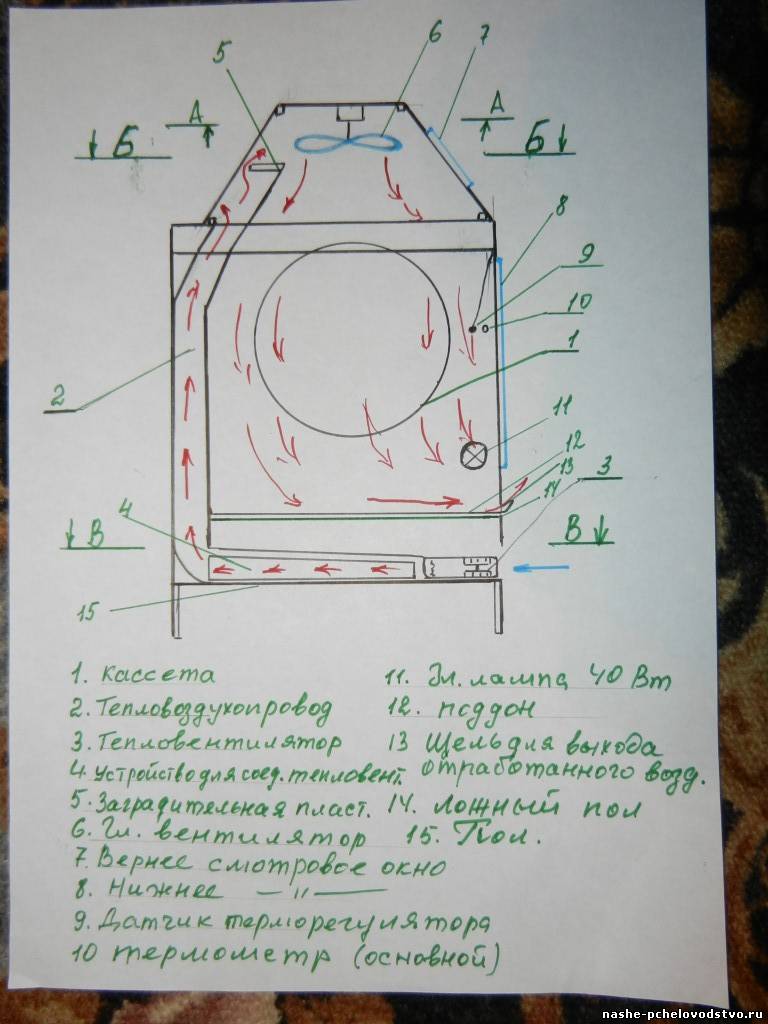 5
6
7
А
А
Б
Б
8
9
10
1
2
11
12
13
3
14
4
В
В
15
1. Кассета
2. Тепловоздухопровод
3. Тепловентилятор
4. Устройство для соед. тепловент.
5. Заградительная пласт.
6. Гл. вентилятор
7. Вернее смотровое окно
8. Нижнее — " —
9. Датчик терморегулятора
10 термометр (основной)
11. Эл. лампа 40 Вт
12. поддон
13 Щель для выхода
отработанного возд.
14. ложный пол
15. Пол.
nashe-pchelovodstvo.ru